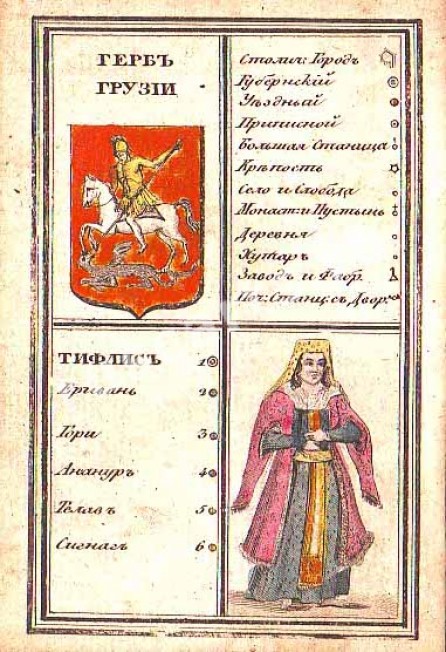 ГЕРБЪ
ГРУЗІИ
Столич: Городъ
Губернскій
Уѣздный
Приписной
Большая Станица
Крѣпость
Село и Слобода
Монаст: и Пустынь
Деревня
Хутаръ
Заводъ и Фабр.
Поч: Станц: съ Двор:
ТИФЛИСЪ 1
Еривань 2
Гори 3
Анануръ 4
Телавъ 5
Сигнагъ 6